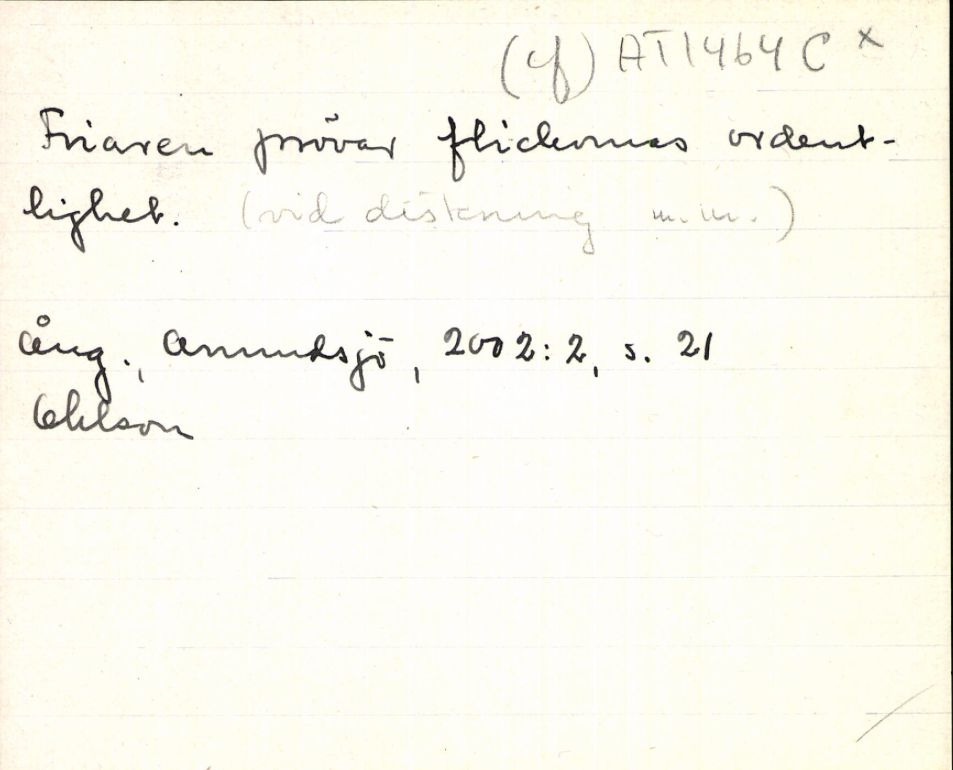 (cf) AT1464 C x
Friaren prövar flickornas ordent-
lighet. (vid diskning m.m.)
Ång., Anundsjö, 2002:2, s. 21
Ohlson